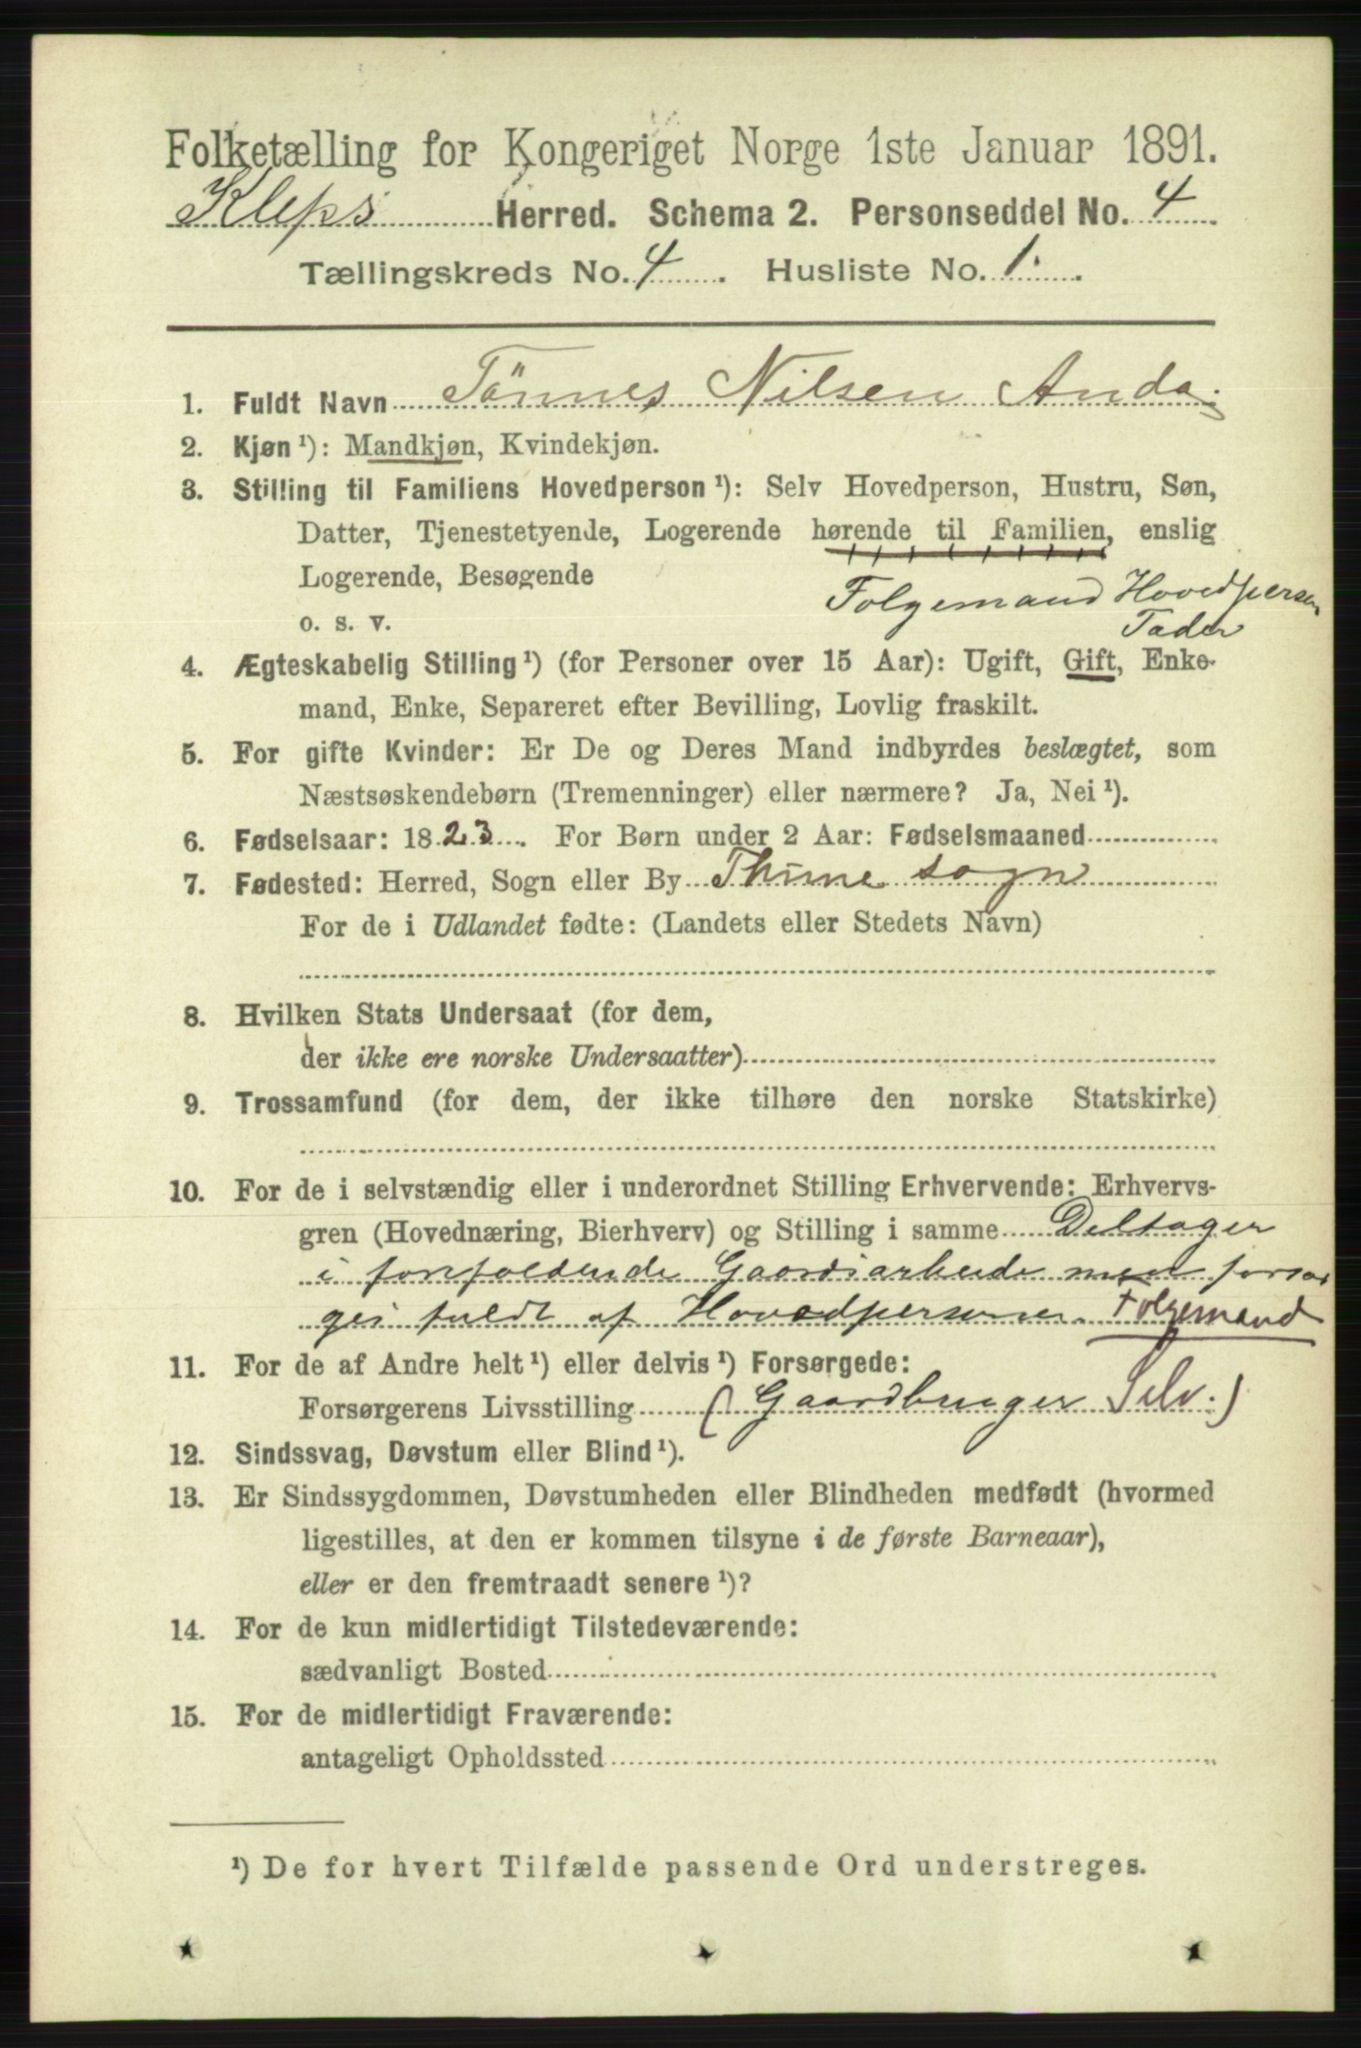 Folketælling for Kongeriget Norge 1ste Januar 1891.
Kleps Herred. Schema 2. Personseddel No. 4
Tællingskreds No. 4. Husliste No. 1.
1. Fuldt Navn Tönnes Nilsen Anda
2. Kjøn ¹): Mandkjøn, Kvindekjøn.
3. Stilling til Familiens Hovedperson ¹): Selv Hovedperson, Hustru, Søn,
Datter, Tjenestetyende, Logerende hørende til Familien, enslig
Logerende, Besøgende
Folgemand Hovedpersen
o. s. v.
Fader
4. Ægteskabelig Stilling ¹) (for Personer over 15 Aar): Ugift, Gift, Enke-
mand, Enke, Separeret efter Bevilling, Lovlig fraskilt.
5. For gifte Kvinder: Er De og Deres Mand indbyrdes beslægtet, som
Næstsøskendebørn (Tremenninger) eller nærmere? Ja, Nei ¹).
6. Fødselsaar: 1823. For Børn under 2 Aar: Fødselsmaaned
7. Fødested: Herred, Sogn eller By Thime sogn
For de i Udlandet fødte: (Landets eller Stedets Navn)
8. Hvilken Stats Undersaat (for dem,
der ikke ere norske Undersaatter)
9. Trossamfund (for dem, der ikke tilhøre den norske Statskirke)
10. For de i selvstændig eller i underordnet Stilling Erhvervende: Erhvervs-
gren (Hovednæring, Bierhverv) og Stilling i samme Deltager
i forfoldende Gaardsarbeide men forsør
ges fuldt af Hovedpersonen. Folgemand
11. For de af Andre helt ¹) eller delvis ¹) Forsørgede:
Forsørgerens Livsstilling (Gaardbruger Selv.)
12. Sindssvag, Døvstum eller Blind ¹).
13. Er Sindssygdommen, Døvstumheden eller Blindheden medfødt (hvormed
ligestilles, at den er kommen tilsyne i de første Barneaar),
eller er den fremtraadt senere ¹)?
14. For de kun midlertidigt Tilstedeværende:
sædvanligt Bosted
15. For de midlertidigt Fraværende:
antageligt Opholdssted
¹) De for hvert Tilfælde passende Ord understreges.